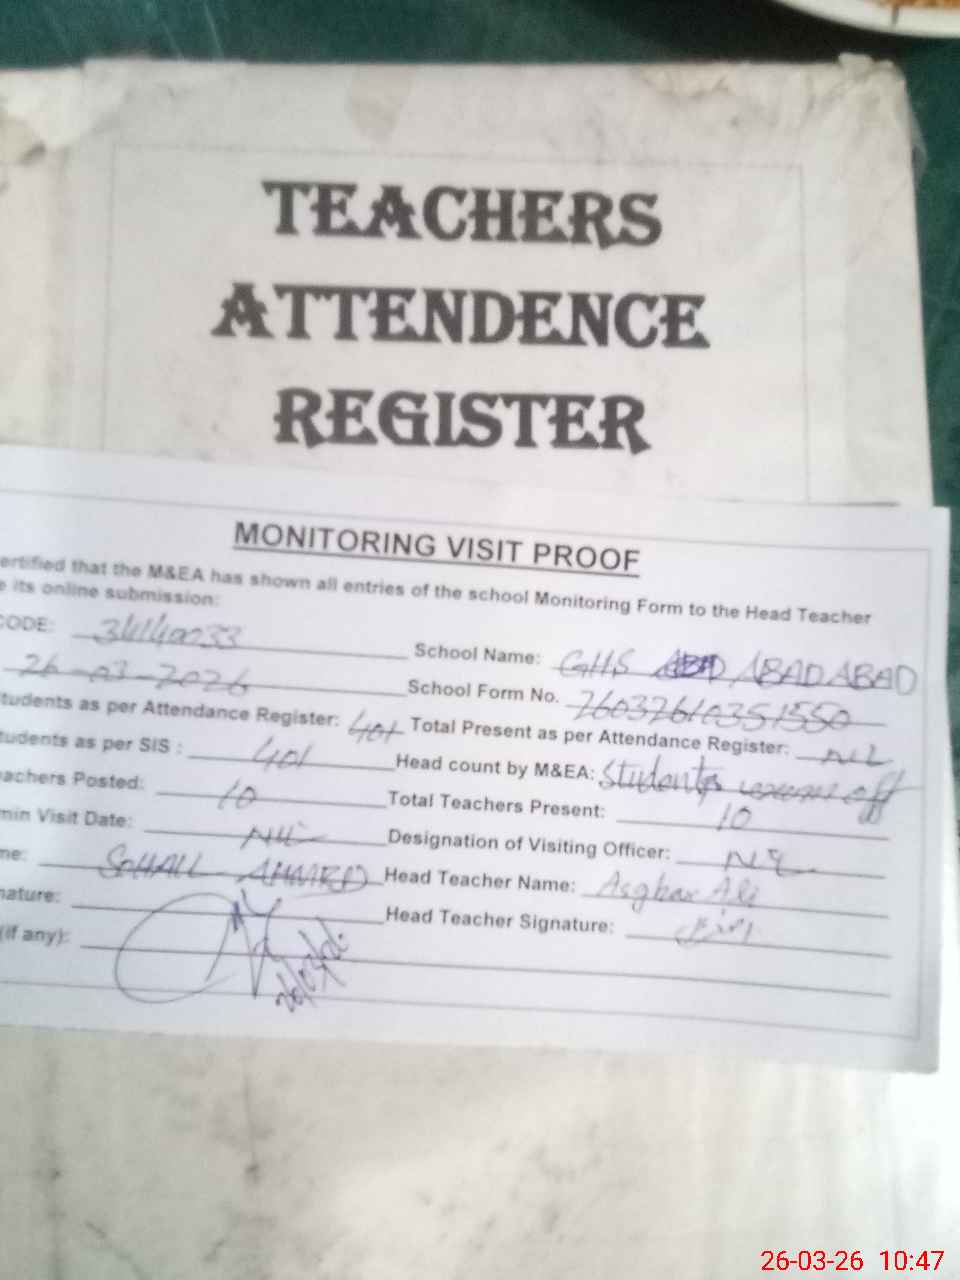 TEACHERS
ATTENDENCE
REGISTER
MONITORING VISIT PROOF
ertified that the M&EA has shown all entries of the school Monitoring Form to the Head Teacher
e its online submission:
CODE: School Name: GHS ABAD ABAD
26-03-2026 School Form No.
tudents as per Attendance Register: 401 Total Present as per Attendance Register: NIL
tudents as per SIS : 401 Head count by M&EA: Students off
achers Posted: 10 Total Teachers Present: 10
min Visit Date: Nil Designation of Visiting Officer: Nil
me: SOHAIL AHMED Head Teacher Name: Asghar Ali
nature: Head Teacher Signature:
(if any):
26/03/26
26-03-26 10:47